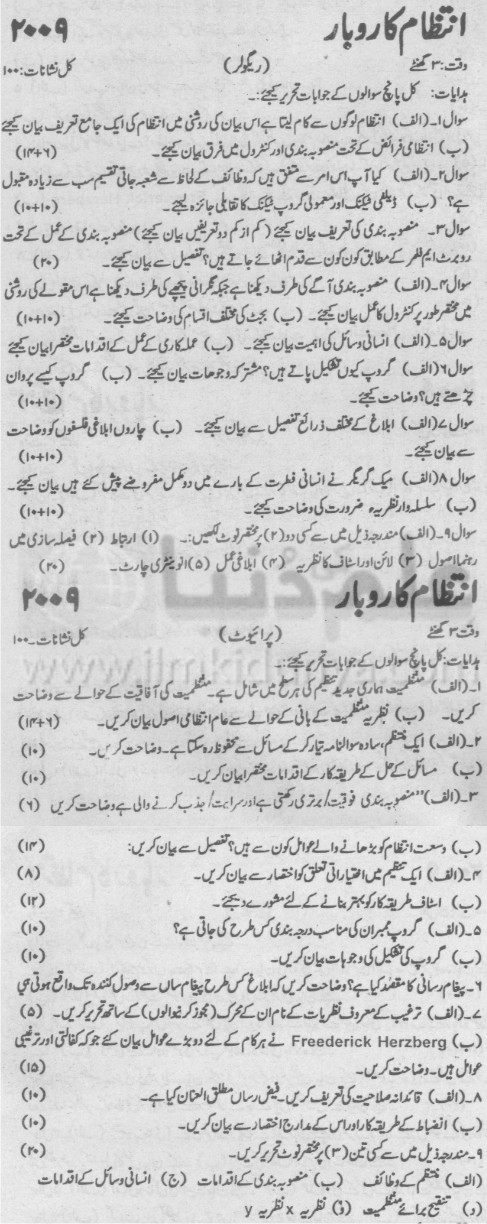 انتظام کاروبار ۲۰۰۹
وقت: ۳ گھنٹے (ریگولر) کل نشانات: ۱۰۰
ہدایات: کل پانچ سوالوں کے جوابات تحریر کیجئے:۔
سوال۱۔ (الف) انتظام لوگوں سے کام لیتا ہے اس بیان کی روشنی میں انتظام کی ایک جامع تعریف بیان کیجئے
(ب) انتظامی فرائض کے تحت منصوبہ بندی اور کنٹرول میں فرق بیان کیجئے۔ (۶+۱۴)
سوال۲۔ (الف) کیا آپ اس امر سے متفق ہیں کہ وظائف کے لحاظ سے شعبہ جاتی تقسیم سب سے زیادہ مقبول
ہے؟ (ب) ڈیلفی ٹیکنک اور معمولی گروپ ٹیکنک کا تقابلی جائزہ لیجئے۔ (۱۰+۱۰)
سوال۳۔ منصوبہ بندی کی تعریف بیان کیجئے (کم از کم دو تعریفیں بیان کیجئے) منصوبہ بندی کے عمل کے تحت
روبرٹ ایم فلمر کے مطابق کون کون سے قدم اٹھائے جاتے ہیں؟ تفصیل سے بیان کیجئے۔ (۲۰)
سوال۴۔ (الف) منصوبہ بندی آگے کی طرف دیکھنا ہے جبکہ نگرانی پیچھے کی طرف دیکھنا ہے اس مقولے کی روشنی
میں مختصر طور پر کنٹرول کا عمل بیان کیجئے۔ (ب) بجٹ کی مختلف اقسام کی وضاحت کیجئے۔ (۱۰+۱۰)
سوال۵۔ (الف) انسانی وسائل کی اہمیت بیان کیجئے۔ (ب) عملہ کاری کے عمل کے اقدامات مختصراً بیان کیجئے
سوال۶ (الف) گروپ کیوں تشکیل پاتے ہیں؟ مشترکہ وجوہات بیان کیجئے۔ (ب) گروپ کیسے پروان
چڑھتے ہیں؟ وضاحت کیجئے۔ (۱۰+۱۰)
سوال۷ (الف) ابلاغ کے مختلف ذرائع تفصیل سے بیان کیجئے۔ (ب) چاروں ابلاغی فلسفوں کو وضاحت
سے بیان کیجئے۔ (۱۰+۱۰)
سوال۸ (الف) میک گریگر نے انسانی فطرت کے بارے میں دو مکمل مفروضے پیش کئے ہیں بیان کیجئے۔
(ب) سلسلہ وار نظریہ ضرورت کی وضاحت کیجئے۔ (۱۰+۱۰)
سوال۹۔ (الف) مندرجہ ذیل میں سے کسی دو (۲) پر مختصر نوٹ لکھیں:۔ (۱) ارتباط (۲) فیصلہ سازی میں
رہنما اصول (۳) لائن اور اسٹاف کا نظریہ (۴) ابلاغی عمل (۵) انوینٹری چارٹ۔ (۲۰)
انتظام کاروبار ۲۰۰۹
وقت: ۳ گھنٹے (پرائیوٹ) کل نشانات۔ ۱۰۰
ہدایات: کل پانچ سوالوں کے جوابات تحریر کیجئے:۔
۱۔ (الف) منتظمیت ہماری جدید تنظیم کی ہر سطح میں شامل ہے۔ منتظمیت کی آفاقیت کے حوالے سے وضاحت
کریں۔ (ب) نظریہ منتظمیت کے بانی کے حوالے سے عام انتظامی اصول بیان کریں۔ (۶+۱۴)
۲۔ (الف) ایک منتظم، سادہ سوالنامہ تیار کر کے مسائل سے محفوظ رہ سکتا ہے۔ وضاحت کریں۔ (۱۰)
(ب) مسائل کے حل کے طریقہ کار کے اقدامات مختصراً بیان کریں۔ (۱۰)
۳۔ (الف) "منصوبہ بندی فوقیت / برتری رکھتی ہے اور سرایت / جذب کرنے والی ہے وضاحت کریں (۶)
(ب) وسعت انتظام کو بڑھانے والے عوامل کون سے ہیں؟ تفصیل سے بیان کریں: (۱۴)
۴۔ (الف) ایک تنظیم میں اختیاراتی تعلق کو اختصار سے بیان کریں۔ (۸)
(ب) اسٹاف طریقہ کار کو بہتر بنانے کے لئے مشورے دیجئے۔ (۱۲)
۵۔ (الف) گروپ ممبران کی مناسب درجہ بندی کس طرح کی جاتی ہے؟ (۱۰)
(ب) گروپ کی تشکیل کی وجوہات بیان کریں۔ (۱۰)
۶۔ پیغام رسانی کا مقصد کیا ہے؟ وضاحت کریں کہ ابلاغ کس طرح پیغام رساں سے وصول کنندہ تک واقع ہوتی ہی
۷۔ (الف) ترغیب کے معروف نظریات کے نام ان کے محرک (تجویز کرنیوالوں) کے ساتھ تحریر کریں۔ (۵)
(ب) Freederick Herzberg نے ہر کام کے لئے دو بڑے عوامل بیان کئے جو کہ کفالتی اور ترغیبی
عوامل ہیں۔ وضاحت کریں۔ (۱۵)
۸۔ (الف) قائدانہ صلاحیت کی تعریف کریں۔ فیض رساں مطلق العنان کیا ہے۔ (۱۰)
(ب) انضباط کے طریقہ کار اور اس کے مدارج اختصار سے بیان کریں۔ (۱۰)
۹۔ مندرجہ ذیل میں سے کسی تین (۳) پر مختصر نوٹ تحریر کریں۔ (۲۰)
(الف) منتظم کے وظائف (ب) منصوبہ بندی کے اقدامات (ج) انسانی وسائل کے اقدامات
(د) تنقیح برائے منتظمیت نظریہ x نظریہ y